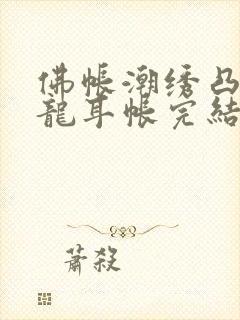 佛帐潮绣凸
龍耳帐完結
蕭殺